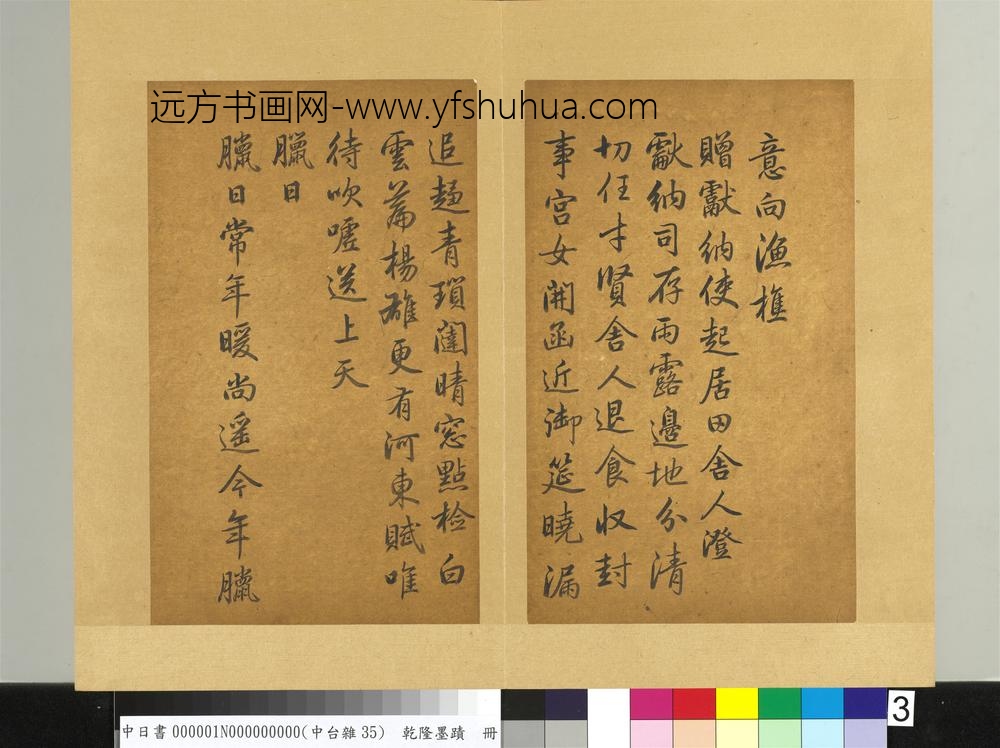 远方书画网-www.yfshuhua.com
意向漁樵
贈獻納使起居田舍人澄
獻納司存雨露邊地分清
切任才賢舍人退食收封
事宮女開函近御筵曉漏
追趍青瑣闥晴窓點检白
雲篇楊雄更有河東賦唯
待吹噓送上天
臘日
臘日常年暖尚遥今年臘
3
中日書000001N000000000(中台雜35) 乾隆墨蹟 冊